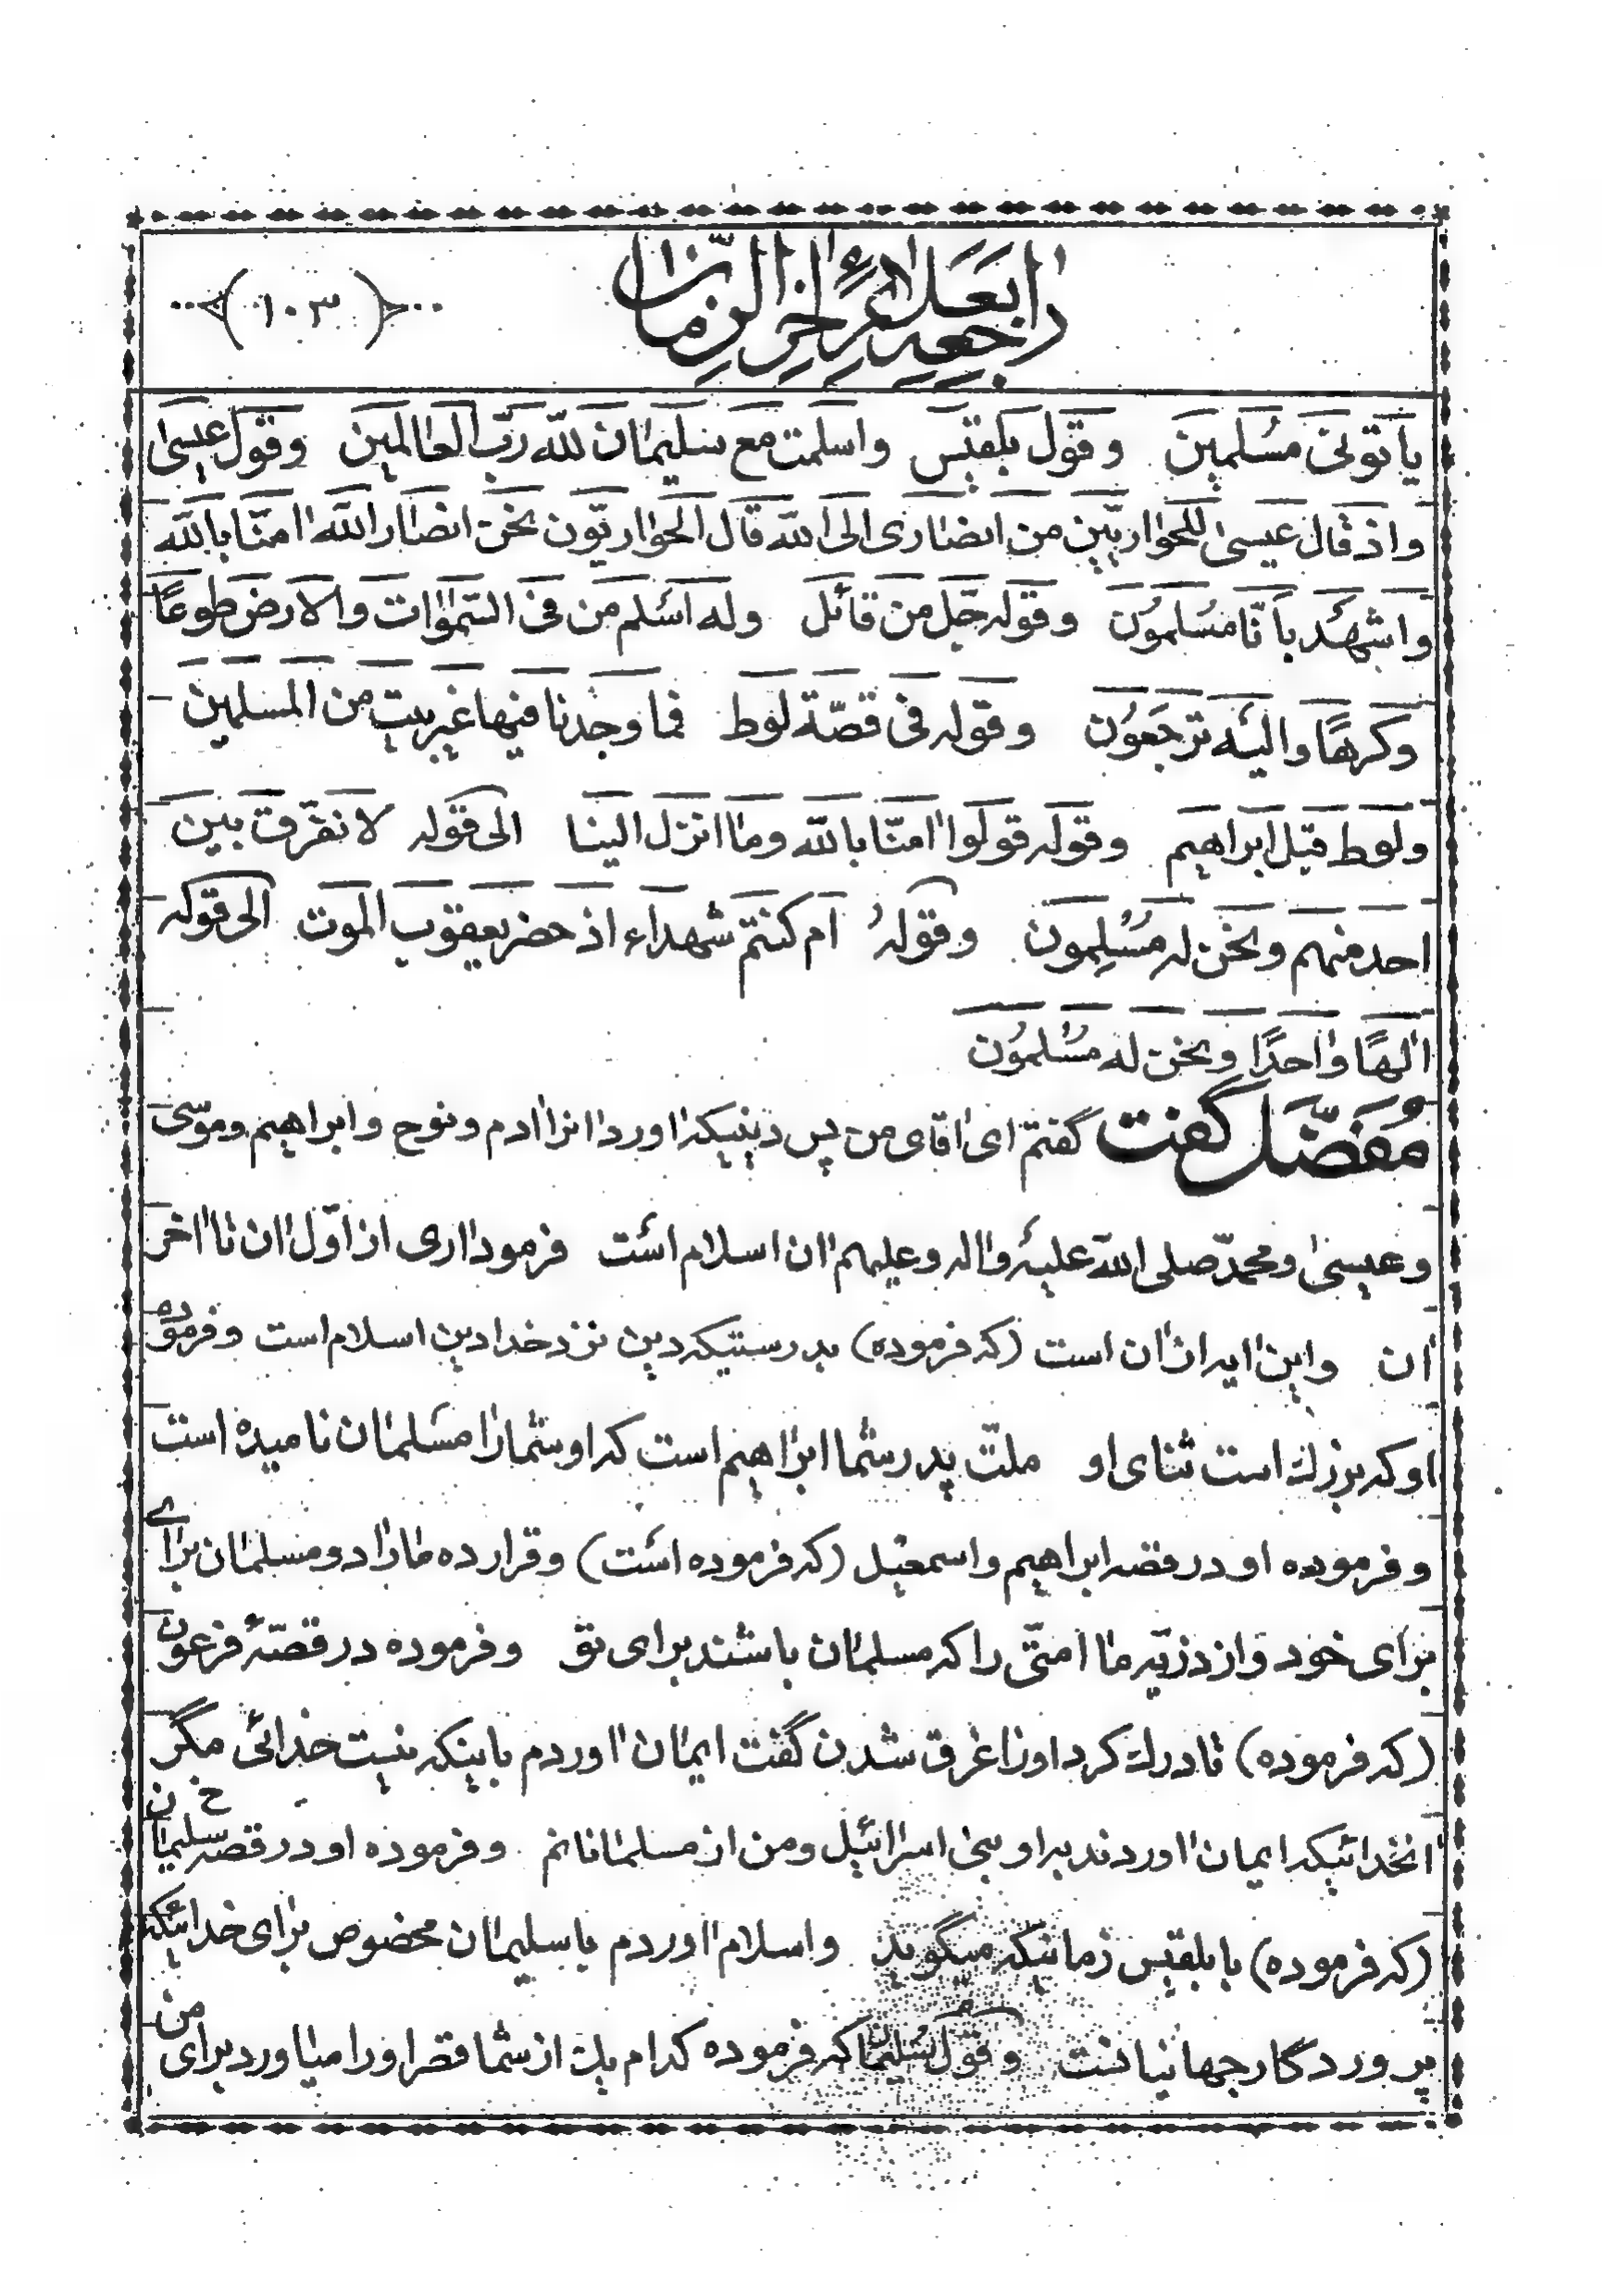 راجعه بعلائم اخر الزمان
(۱۰۳)
یأتونی مسلمین وقول بلقیس واسلمت مع سلیمان لله ربّ العالمین وقول عیسی
واذ قال عیسی للحواریّین من انصاری الی الله قال الحواریّون نحن انصار الله امنّا بالله
واشهد بأنّا مسلمون وقوله جّل من قائل وله اسلم من فی السّموات والارض طوعًا
وکرهًا والیه ترجعون وقوله فی قصّة لوط فما وجدنا فیها غیر بیت من المسلمین
ولوط قبل ابراهیم وقوله قولوا امنّا بالله وما انزل الینا الی قوله لا نفرّق بین
احد منهم ونحن له مُسْلِمون وقولهُ ام کنتم شهداء اذ حضر یعقوب الموت الی قوله
الهًا واحدًا ونحن له مسلمون
مُفَضَّل گفت گفتم ای اقای من پس دینیکه اورد انرا ادم ونوح وابراهیم وموسی
وعیسی ومحمدّ صلی الله علیه واله وعلیهم ان اسلام است فرمود اری از اوّل ان تا اخر
ان واین ایه ازان است (که فرموده) بدرستیکه دین نزد خدا دین اسلام است وفرموده
او که بزرك است ثنای او ملّت پدر شما ابراهیم است که او شمارا مسلمان نامیده است
وفرموده او در قصه ابراهیم واسمعیل (که فرموده است) وقرار ده مارا دو مسلمان برای
برای خود واز ذریّه ما امتّی را که مسلمان باشند برای تو وفرموده در قصّهٔ فرعون
(که فرموده) تا درك کرد اورا غرق شدن گفت ایمان اوردم باینکه نیست خدائی مگر
انخدائیکه ایمان اوردند به او بنی اسرائیل ومن از مسلمانانم وفرموده او در قصه سلیمان خ ن
(که فرموده) با بلقیس زمانیکه میگوید واسلام اوردم با سلیمان مخصوص برای خدائیکه
پروردگار جهانیانست وقول سلیمان که فرموده کدام یك از شما قصر اورا میاورد برای من